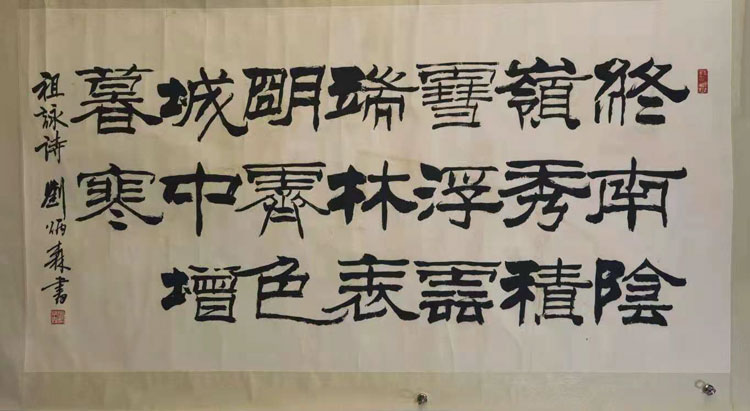 終南陰
嶺秀積
雪浮雲
端林表
朙霽色
城中增
暮寒
祖詠詩 劉炳森書